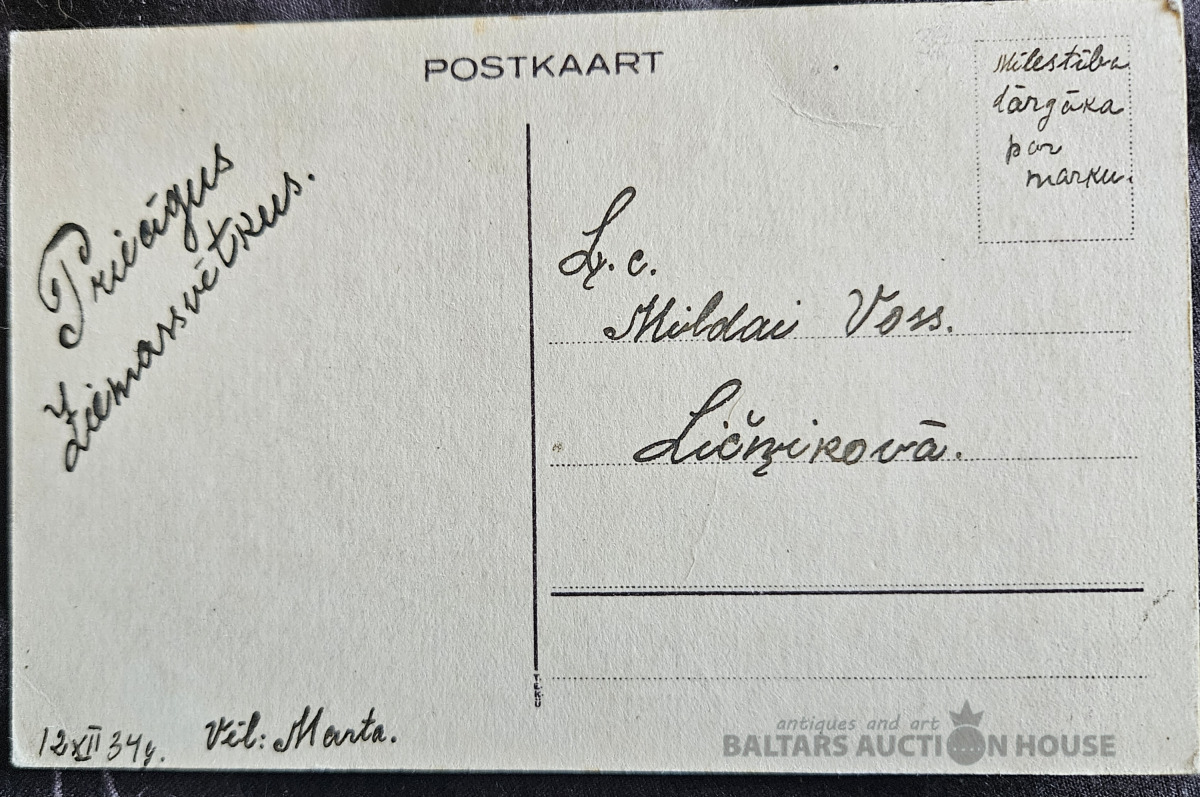 POSTKAART
Milestība
dārgāka
par
marku.
Priecīgus
Ziemassvētkus.
L. c.
Mildai Voss.
Ličņikovā.
12 XII 34g.
Vēl: Marta.
T.E.K.U
antiques and art
BALTARS AUCTION HOUSE